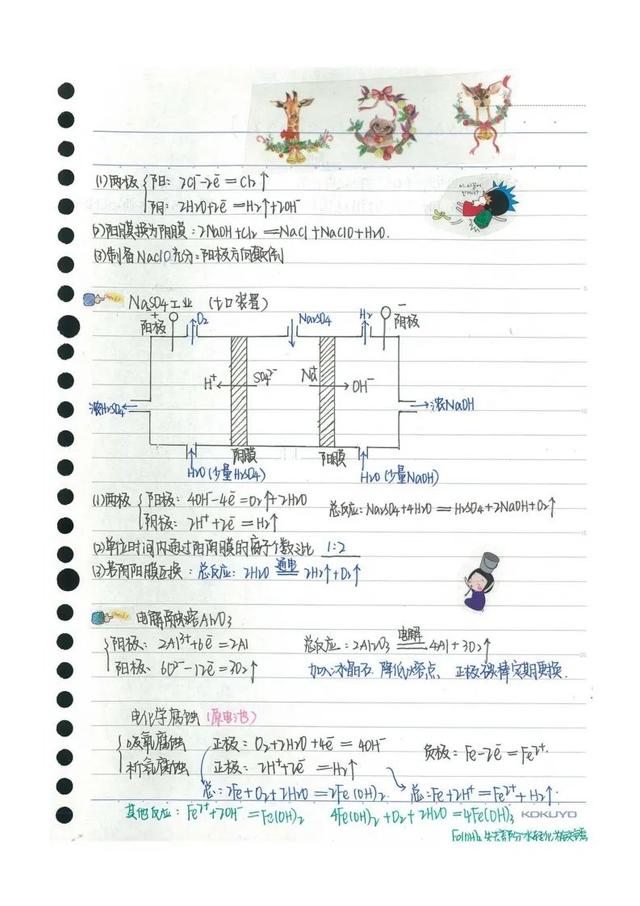 (1)两极 { 阳: 2Cl⁻-2e⁻=Cl₂↑
阴: 2H₂O+2e⁻=H₂↑+2OH⁻
(2)阳膜换为阴膜: 2NaOH+Cl₂=NaCl+NaClO+H₂O.
(3)制备NaClO充分=阳极方向
Na₂SO₄工业 (七口装置)
+ 阳极 O₂ Na₂SO₄ H₂ - 阴极
H⁺ SO₄²⁻ Na⁺ OH⁻
浓H₂SO₄ 浓NaOH
阴膜 阳膜
H₂O(少量H₂SO₄) H₂O(少量NaOH)
(1)两极 { 阳极: 4OH⁻-4e⁻=O₂↑+2H₂O 总反应: Na₂SO₄+4H₂O=H₂SO₄+2NaOH+O₂↑
阴极: 2H⁺+2e⁻=H₂↑
(2)单位时间内通过阳阴膜的离子个数之比 1:2
(3)若阴阳膜互换: 总反应: 2H₂O 通电= 2H₂↑+O₂↑
电解 Al₂O₃
阴极: 2Al³⁺+6e⁻=2Al 总反应: 2Al₂O₃ 电解= 4Al+3O₂↑
阳极: 6O²⁻-12e⁻=3O₂↑ 加入冰晶石 降低熔点, 正极碳棒定期更换.
电化学腐蚀 (原电池)
吸氧腐蚀 正极: O₂+2H₂O+4e⁻=4OH⁻ 负极: Fe-2e⁻=Fe²⁺.
析氢腐蚀 正极: 2H⁺+2e⁻=H₂↑
总: 2Fe+O₂+2H₂O=2Fe(OH)₂ 总: Fe+2H⁺=Fe²⁺+H₂↑.
其他反应: Fe²⁺+2OH⁻=Fe(OH)₂ 4Fe(OH)₂+O₂+2H₂O=4Fe(OH)₃
KOKUYO
Fe(OH)₃失去部分水转化为铁锈